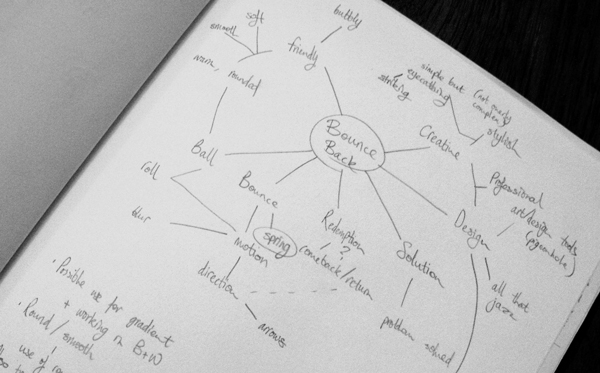 bubbly
soft
smooth
friendly
simple but
eyecatching
striking
(not overly
complex)
stylish
warm, rounded
Bounce
Back
Creative
Ball
Professional
art/design tools
(pigeonhole)
roll
Bounce
Redemption
?
comeback/return
Design
blur
spring
motion
Solution
direction
all that
jazz
arrows
problem solved
· Possible use for gradient
+ working in B+W
· Round/smooth
use of